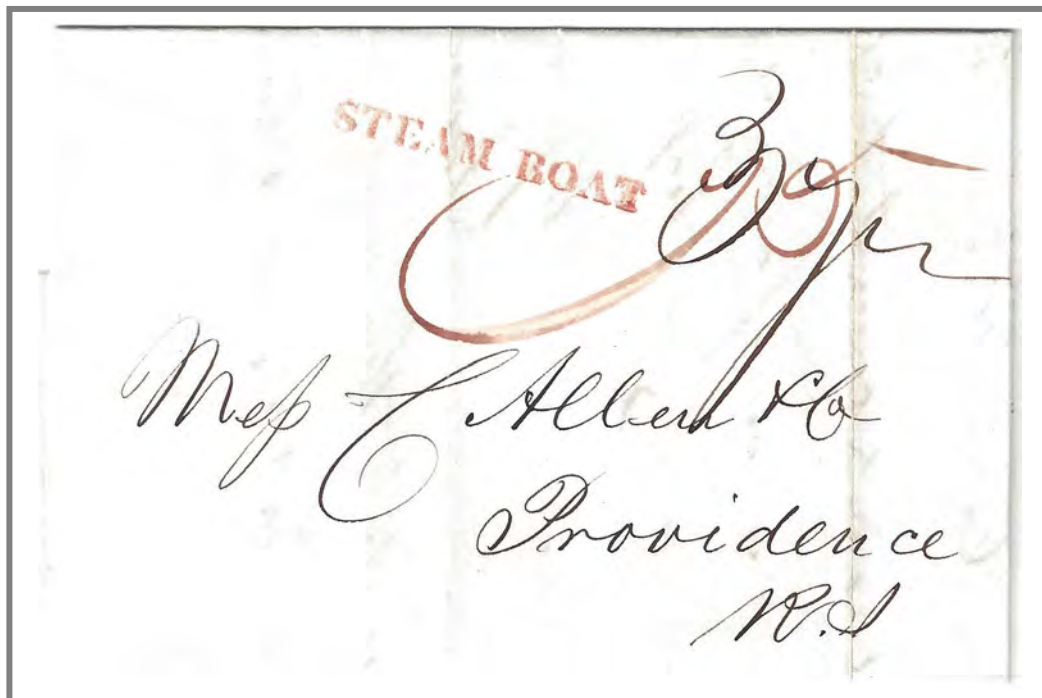 STEAM BOAT
Meſs C Allen & Co
Providence
R.I